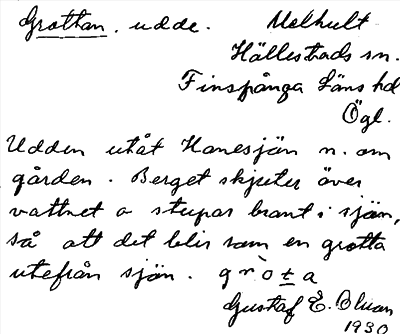 Grottan. udde. Melhult
Hällestads sn.
Finspånga Läns hd
Ögl.
Udden utåt Hanesjön n. om
gården. Berget skjuter över
vattnet o stupar brant i sjön,
så att det blir som en grotta
utefrån sjön. grò±a
Gustaf E. Bluan
1930